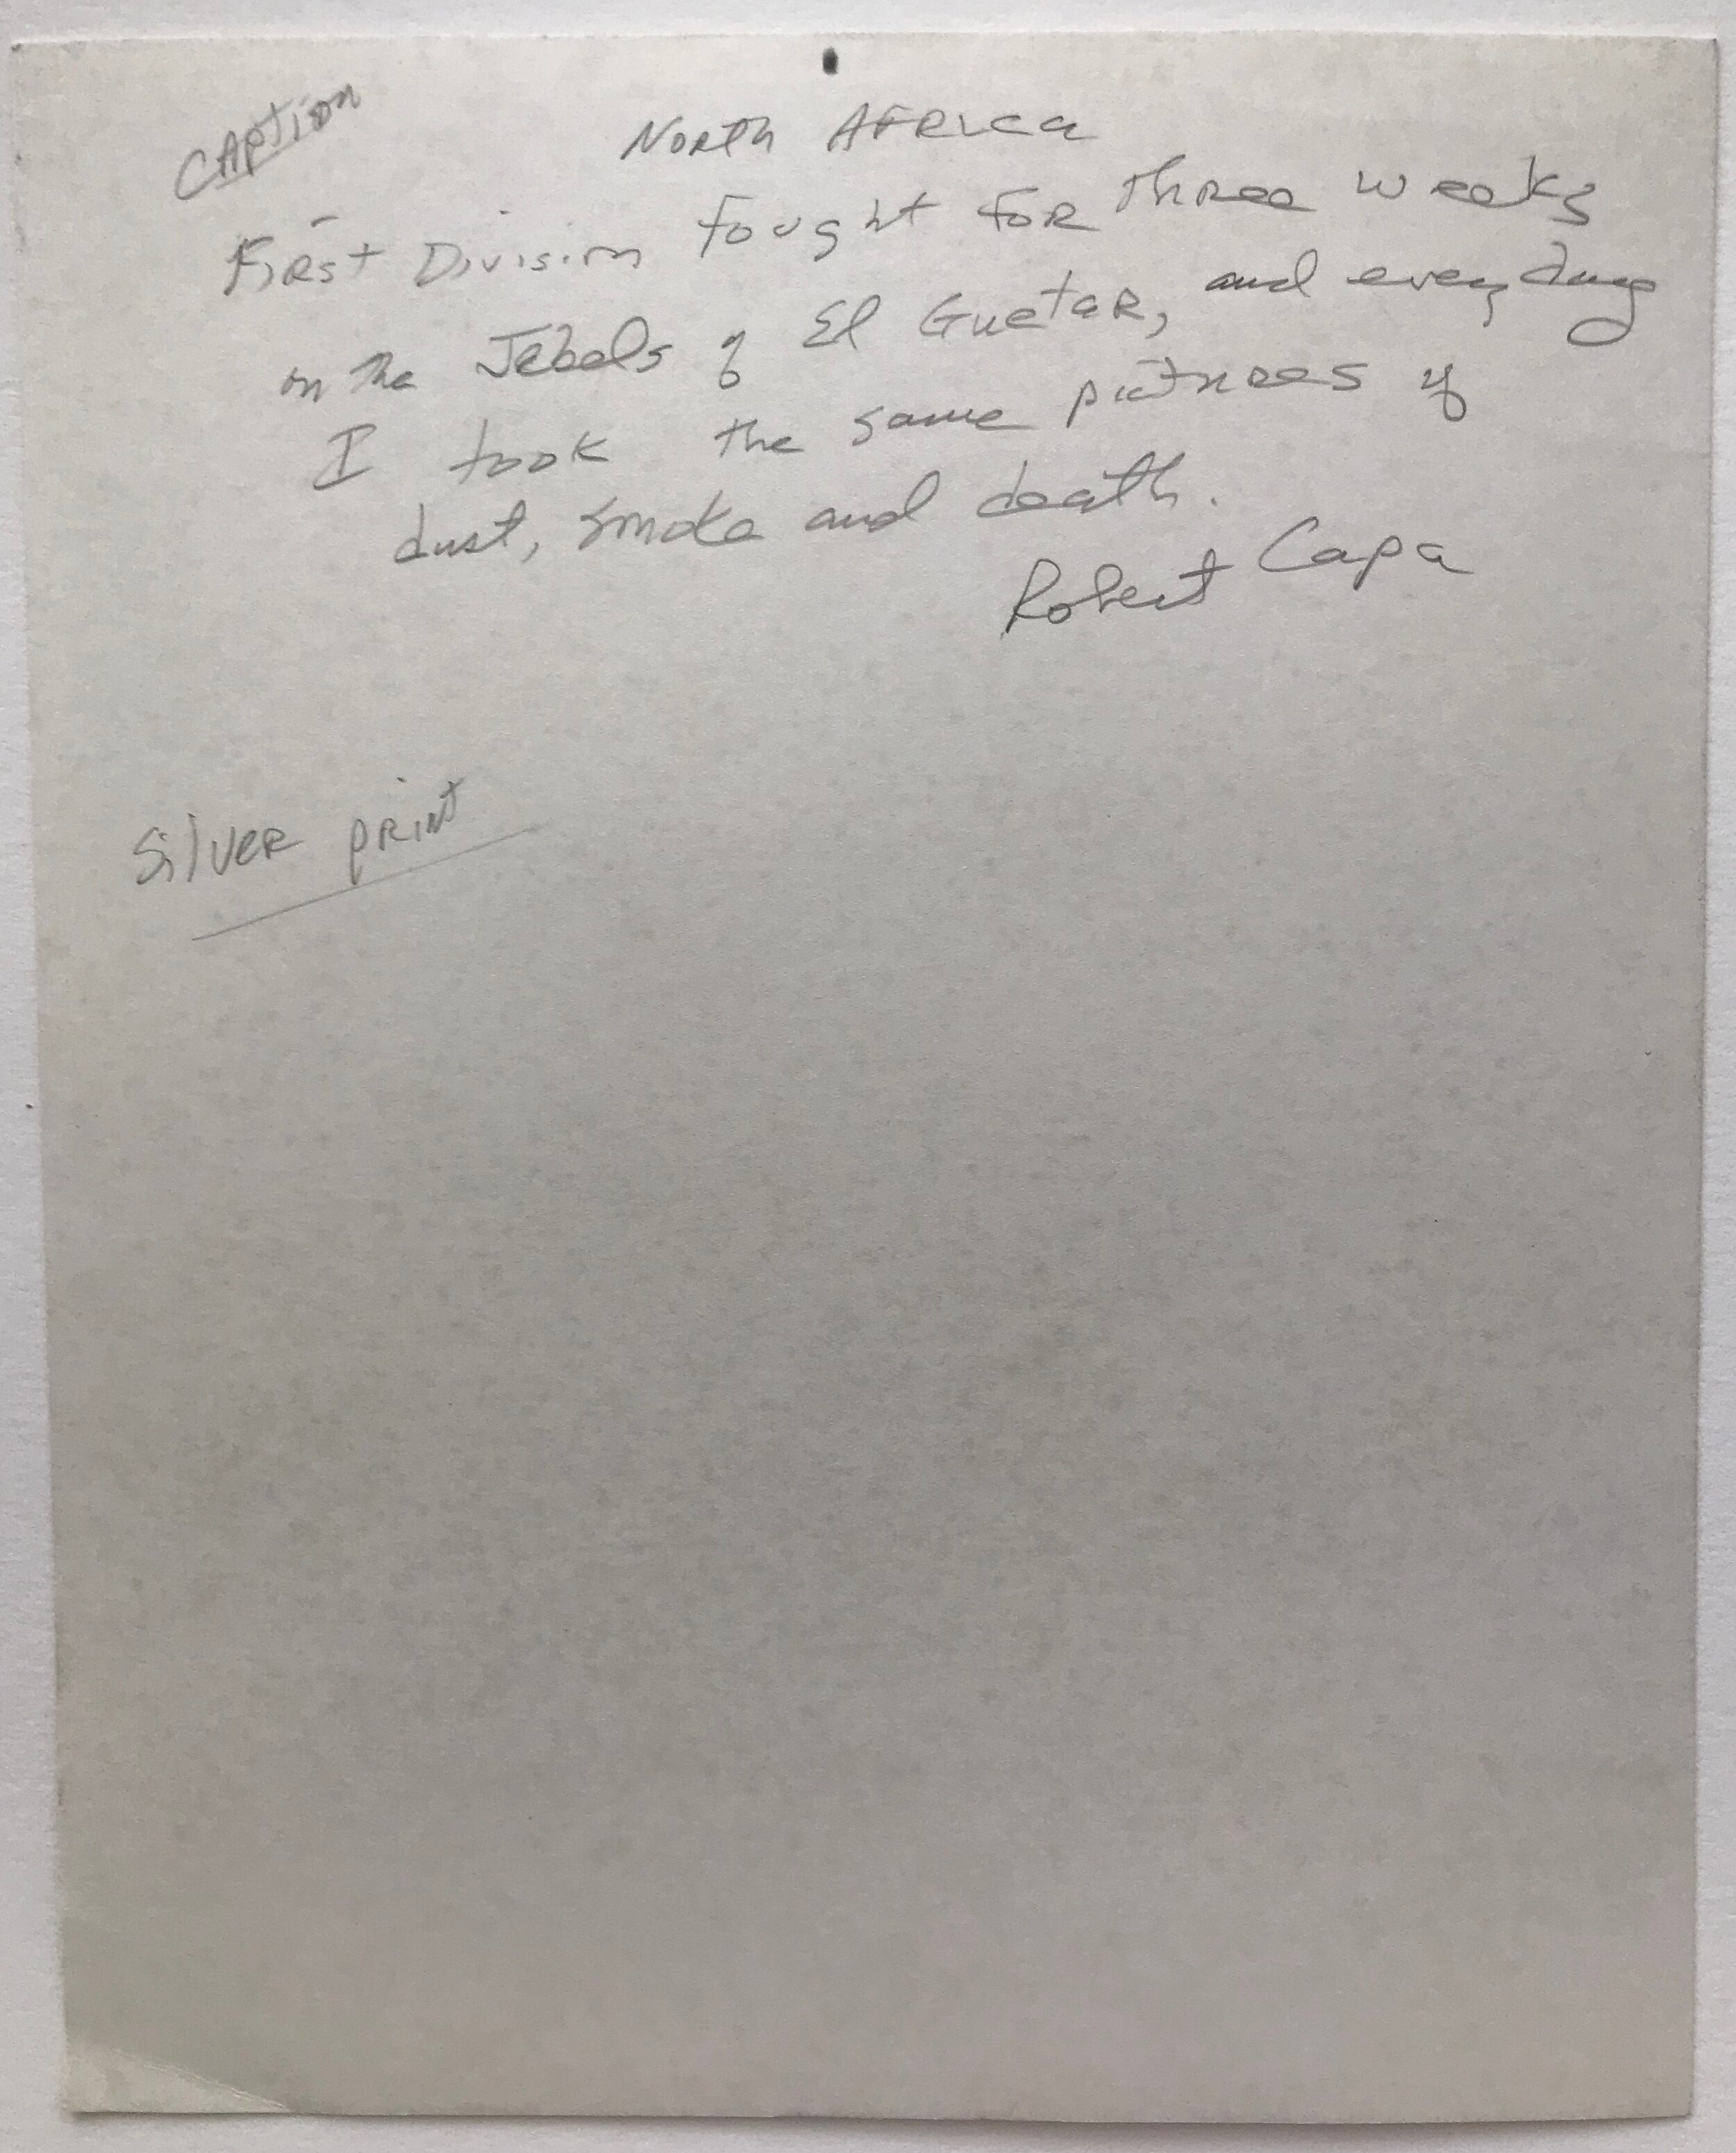 Caption
North Africa
First Division fought for three weeks
on the Jebels of El Guetar, and every day
I took the same pictures of
dust, smoke and death.
Robert Capa
Silver print